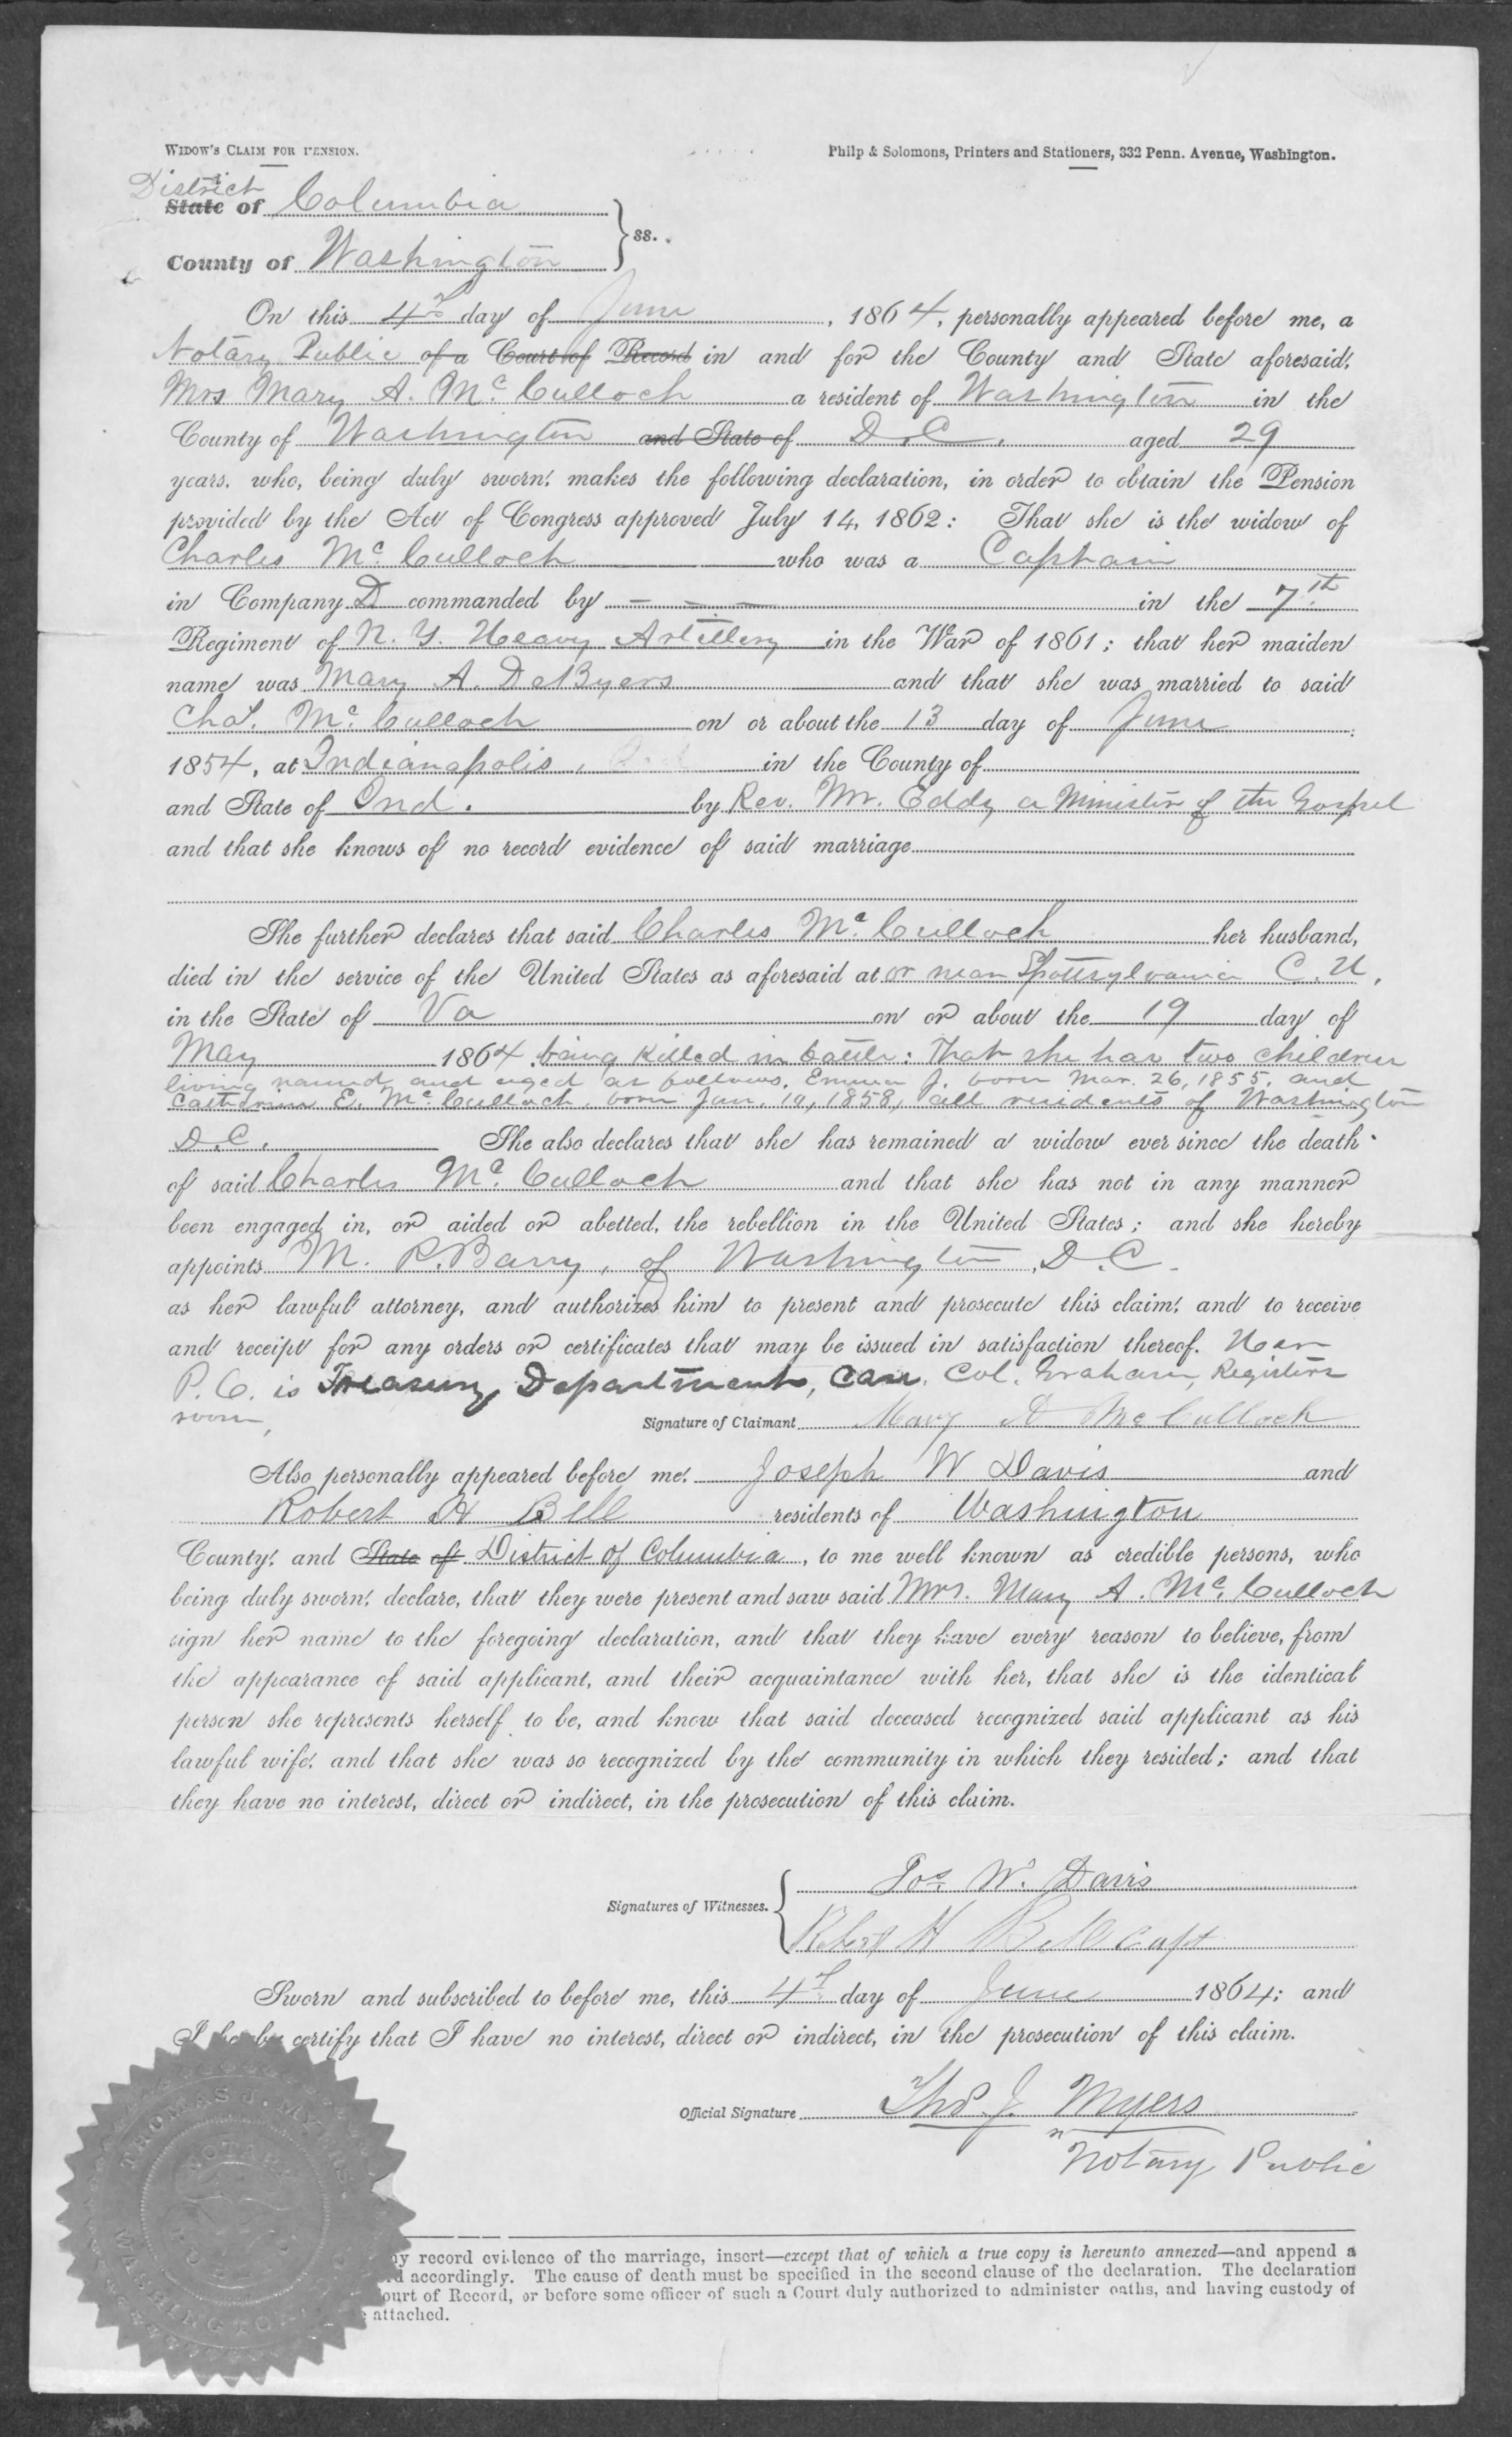 WIDOW'S CLAIM FOR PENSION.
Philp & Solomons, Printers and Stationers, 332 Penn. Avenue, Washington.
District
State of Columbia
ss.
County of Washington
On this 4th day of June, 1864, personally appeared before me, a
Notary Public of a Court of Record in and for the County and State aforesaid,
Mrs Mary A. McCulloch a resident of Washington in the
County of Washington and State of D.C. aged 29
years, who, being duly sworn, makes the following declaration, in order to obtain the Pension
provided by the Act of Congress approved July 14, 1862: That she is the widow of
Charles McCulloch who was a Captain
in Company D commanded by - - - in the 7th
Regiment of N. Y. Heavy Artillery in the War of 1861; that her maiden
name was Mary A. DeByers and that she was married to said
Chas. McCulloch on or about the 13 day of June
1854, at Indianapolis, in the County of
and State of Ind. by Rev. Mr. Eddy a Minister of the Gospel
and that she knows of no record evidence of said marriage
She further declares that said Charles McCulloch her husband,
died in the service of the United States as aforesaid at or near Spottsylvania C. H,
in the State of Va on or about the 19 day of
May 1864 being killed in battle: That she has two children
living named and aged as follows, Emma J. born Mar. 26, 1855, and
Catharine E. McCulloch, born Jan. 19, 1858, all residents of Washington
D.C. She also declares that she has remained a widow ever since the death
of said Charles McCulloch and that she has not in any manner
been engaged in, or aided or abetted, the rebellion in the United States; and she hereby
appoints M. P. Barry, of Washington, D.C.
as her lawful attorney, and authorizes him to present and prosecute this claim, and to receive
and receipt for any orders or certificates that may be issued in satisfaction thereof. Her
P. O. is Treasury Department, care Col. Graham, Registers
room,
Signature of Claimant Mary A McCulloch
Also personally appeared before me, Joseph W Davis and
Robert H Bell residents of Washington
County, and State of District of Columbia, to me well known as credible persons, who
being duly sworn, declare, that they were present and saw said Mrs. Mary A. McCulloch
sign her name to the foregoing declaration, and that they have every reason to believe, from
the appearance of said applicant, and their acquaintance with her, that she is the identical
person she represents herself to be, and know that said deceased recognized said applicant as his
lawful wife, and that she was so recognized by the community in which they resided; and that
they have no interest, direct or indirect, in the prosecution of this claim.
Jos W. Davis
Signatures of Witnesses.
Robert H Bell Capt
Sworn and subscribed to before me, this 4th day of June 1864; and
I hereby certify that I have no interest, direct or indirect, in the prosecution of this claim.
Official Signature Thos. J. Myers
Notary Public
THOMAS J. MYERS.
NOTARY
WASHINGTON
ny record evidence of the marriage, insert—except that of which a true copy is hereunto annexed—and append a
rd accordingly. The cause of death must be specified in the second clause of the declaration. The declaration
ourt of Record, or before some officer of such a Court duly authorized to administer oaths, and having custody of
e attached.